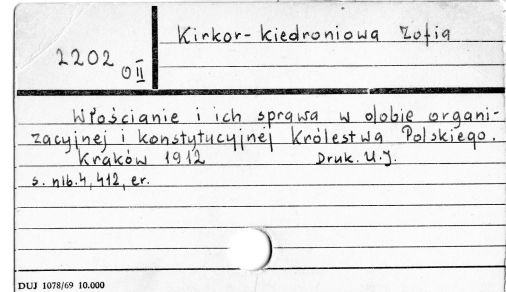 Kirkor-Kiedroniowa Zofia
2202
O II
Włościanie i ich sprawa w dobie organi-
zacyjnej i konstytucyjnej Królestwa Polskiego.
Kraków 1912 Druk. U.J.
s. nlb. 4, 412, er.
DUJ 1078/69 10.000